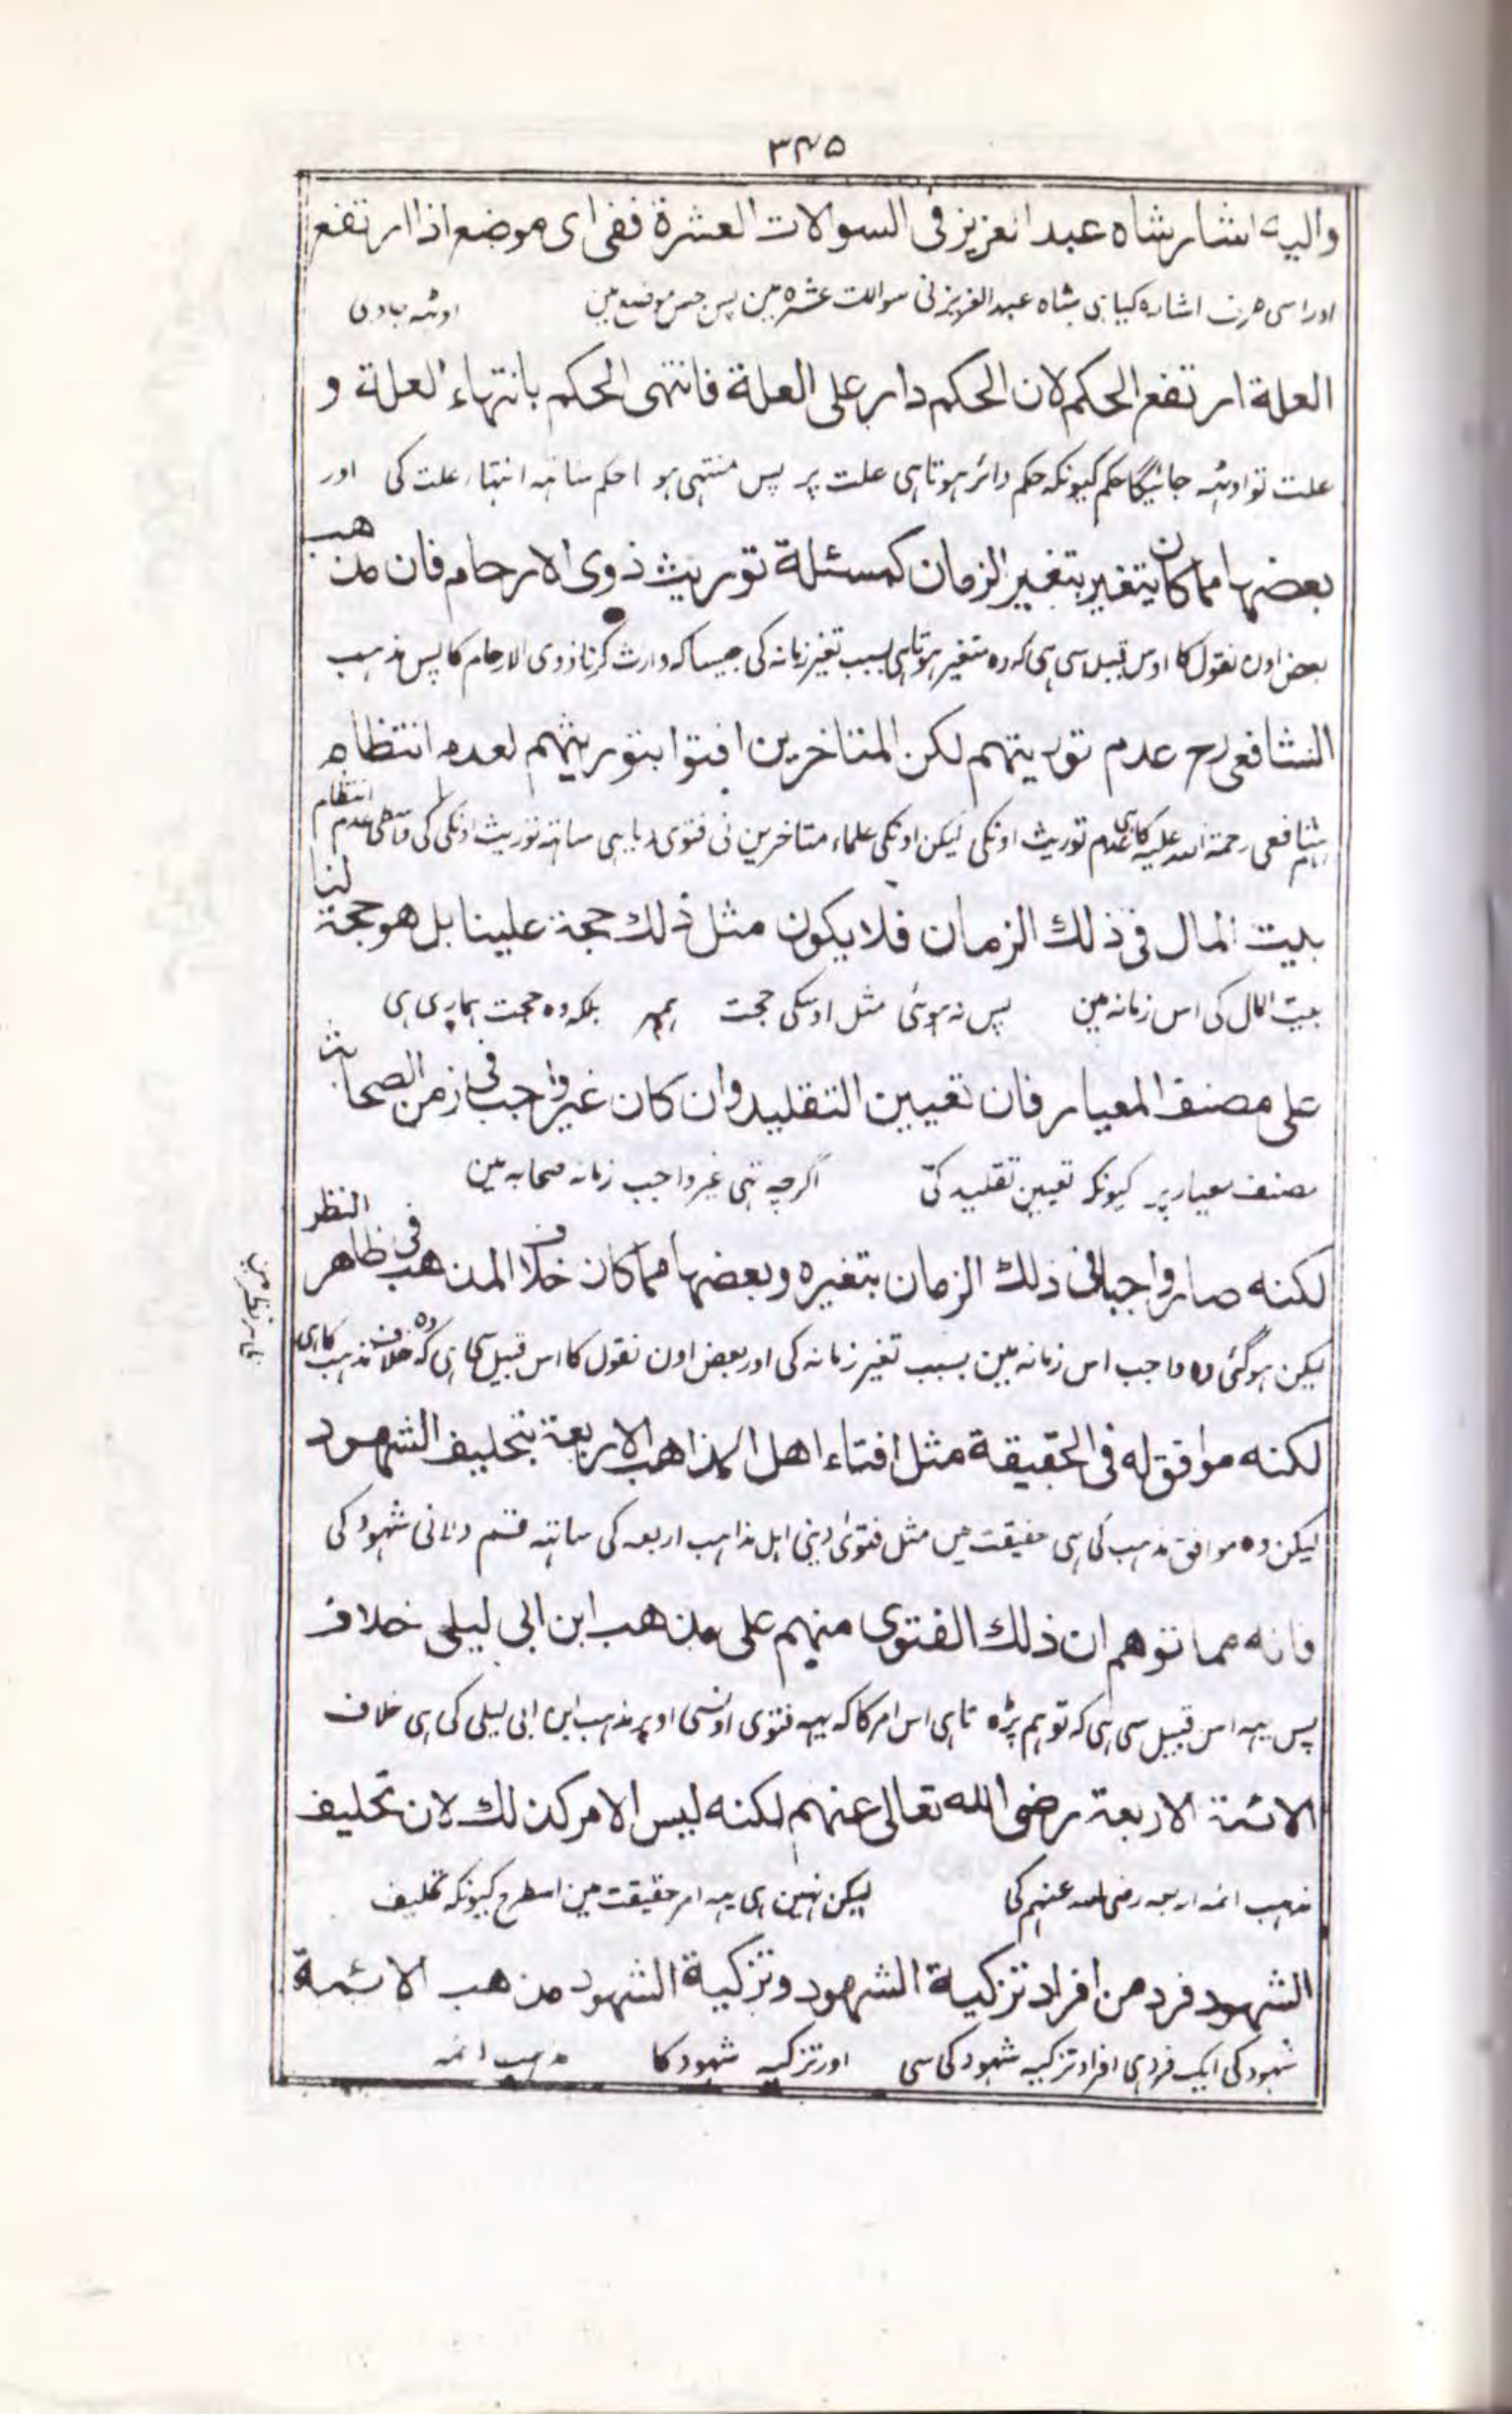 ۳۴۵
واليه اشار شاه عبد العزيز فى السوالات العشرة ففى اى موضع اذا ارتفع
اور اسی طرف اشارہ کیا ہی شاہ عبد العزیز نی سوالات عشرہ مین پس جس موضع مین اوٹہ جاوی
العلة ارتفع الحكم لان الحكم دار على العلة فانتهى الحكم بانتهاء العلة و
علت تو اوٹہ جائیگا حکم کیونکہ حکم دائر ہوتا ہی علت پر پس منتہی ہوا حکم ساتہہ انتہاء علت کی اور
بعضها مما كان يتغير بتغير الزمان كمسئلة توريث ذوى الارحام فان مذهب
بعض اون نقول کا اوس قبیل سی ہی کہ وہ متغیر ہوتا ہی بسبب تغیر زمانہ کی جیسا کہ وارث کرنا ذوی الارحام کا پس مذہب
الشافعى رح عدم توريثهم لكن المتاخرين افتوا بتوريثهم لعدم انتظام
شافعی رحمۃ اللہ علیہ کا ہی عدم توریث اونکی لیکن اونکی علماء متاخرین نی فتوی دیا ہی ساتہہ توریث اونکی کی واسطی عدم انتظام
بيت المال فى ذلك الزمان فلا يكون مثل ذلك حجة علينا بل هو حجة لنا
بیت المال کی اس زمانہ مین پس نہ ہوئی مثل اوسکی حجت ہمپر بلکہ وہ حجت ہماری ہی
على مصنف المعيار فان تعيين التقليد وان كان غير واجب فى زمن الصحابة
مصنف معیار پر کیونکہ تعیین تقلید کی اگرچہ تہی غیر واجب زمانہ صحابہ مین
لكنه صار واجبا فى ذلك الزمان بتغيره وبعضها مما كان خلاف المذهب فى ظاهر النظر
لیکن ہوگئی وہ واجب اس زمانہ مین بسبب تغیر زمانہ کی اور بعض اون نقول کا اس قبیل سی ہی کہ وہ خلاف مذہب کا ہی
ظاہر نظر مین
لكنه موافق له فى الحقيقة مثل افتاء اهل المذاهب الاربعة بتحليف الشهود
لیکن وہ موافق مذہب کی ہی حقیقت مین مثل فتوی دینی اہل مذاہب اربعہ کی ساتہہ قسم دلانی شہود کی
فانه مما توهم ان ذلك الفتوى منهم على مذهب ابن ابى ليلى خلاف
پس یہہ اس قبیل سی ہی کہ توہم پڑہ تا ہی اس امر کا کہ یہہ فتوی اونسی اوپر مذہب ابن ابی لیلی کی ہی خلاف
الائمة الاربعة رضى الله تعالى عنهم لكنه ليس الامر كذلك لان تحليف
مذہب ائمہ اربعہ رضی اللہ عنہم کی لیکن نہین ہی یہہ امر حقیقت مین اسطرح کیونکہ تحلیف
الشهود فرد من افراد تزكية الشهود وتزكية الشهود مذهب الائمة
شہود کی ایک فرد ہی افراد تزکیہ شہود کی سی اور تزکیہ شہود کا مذہب ائمہ